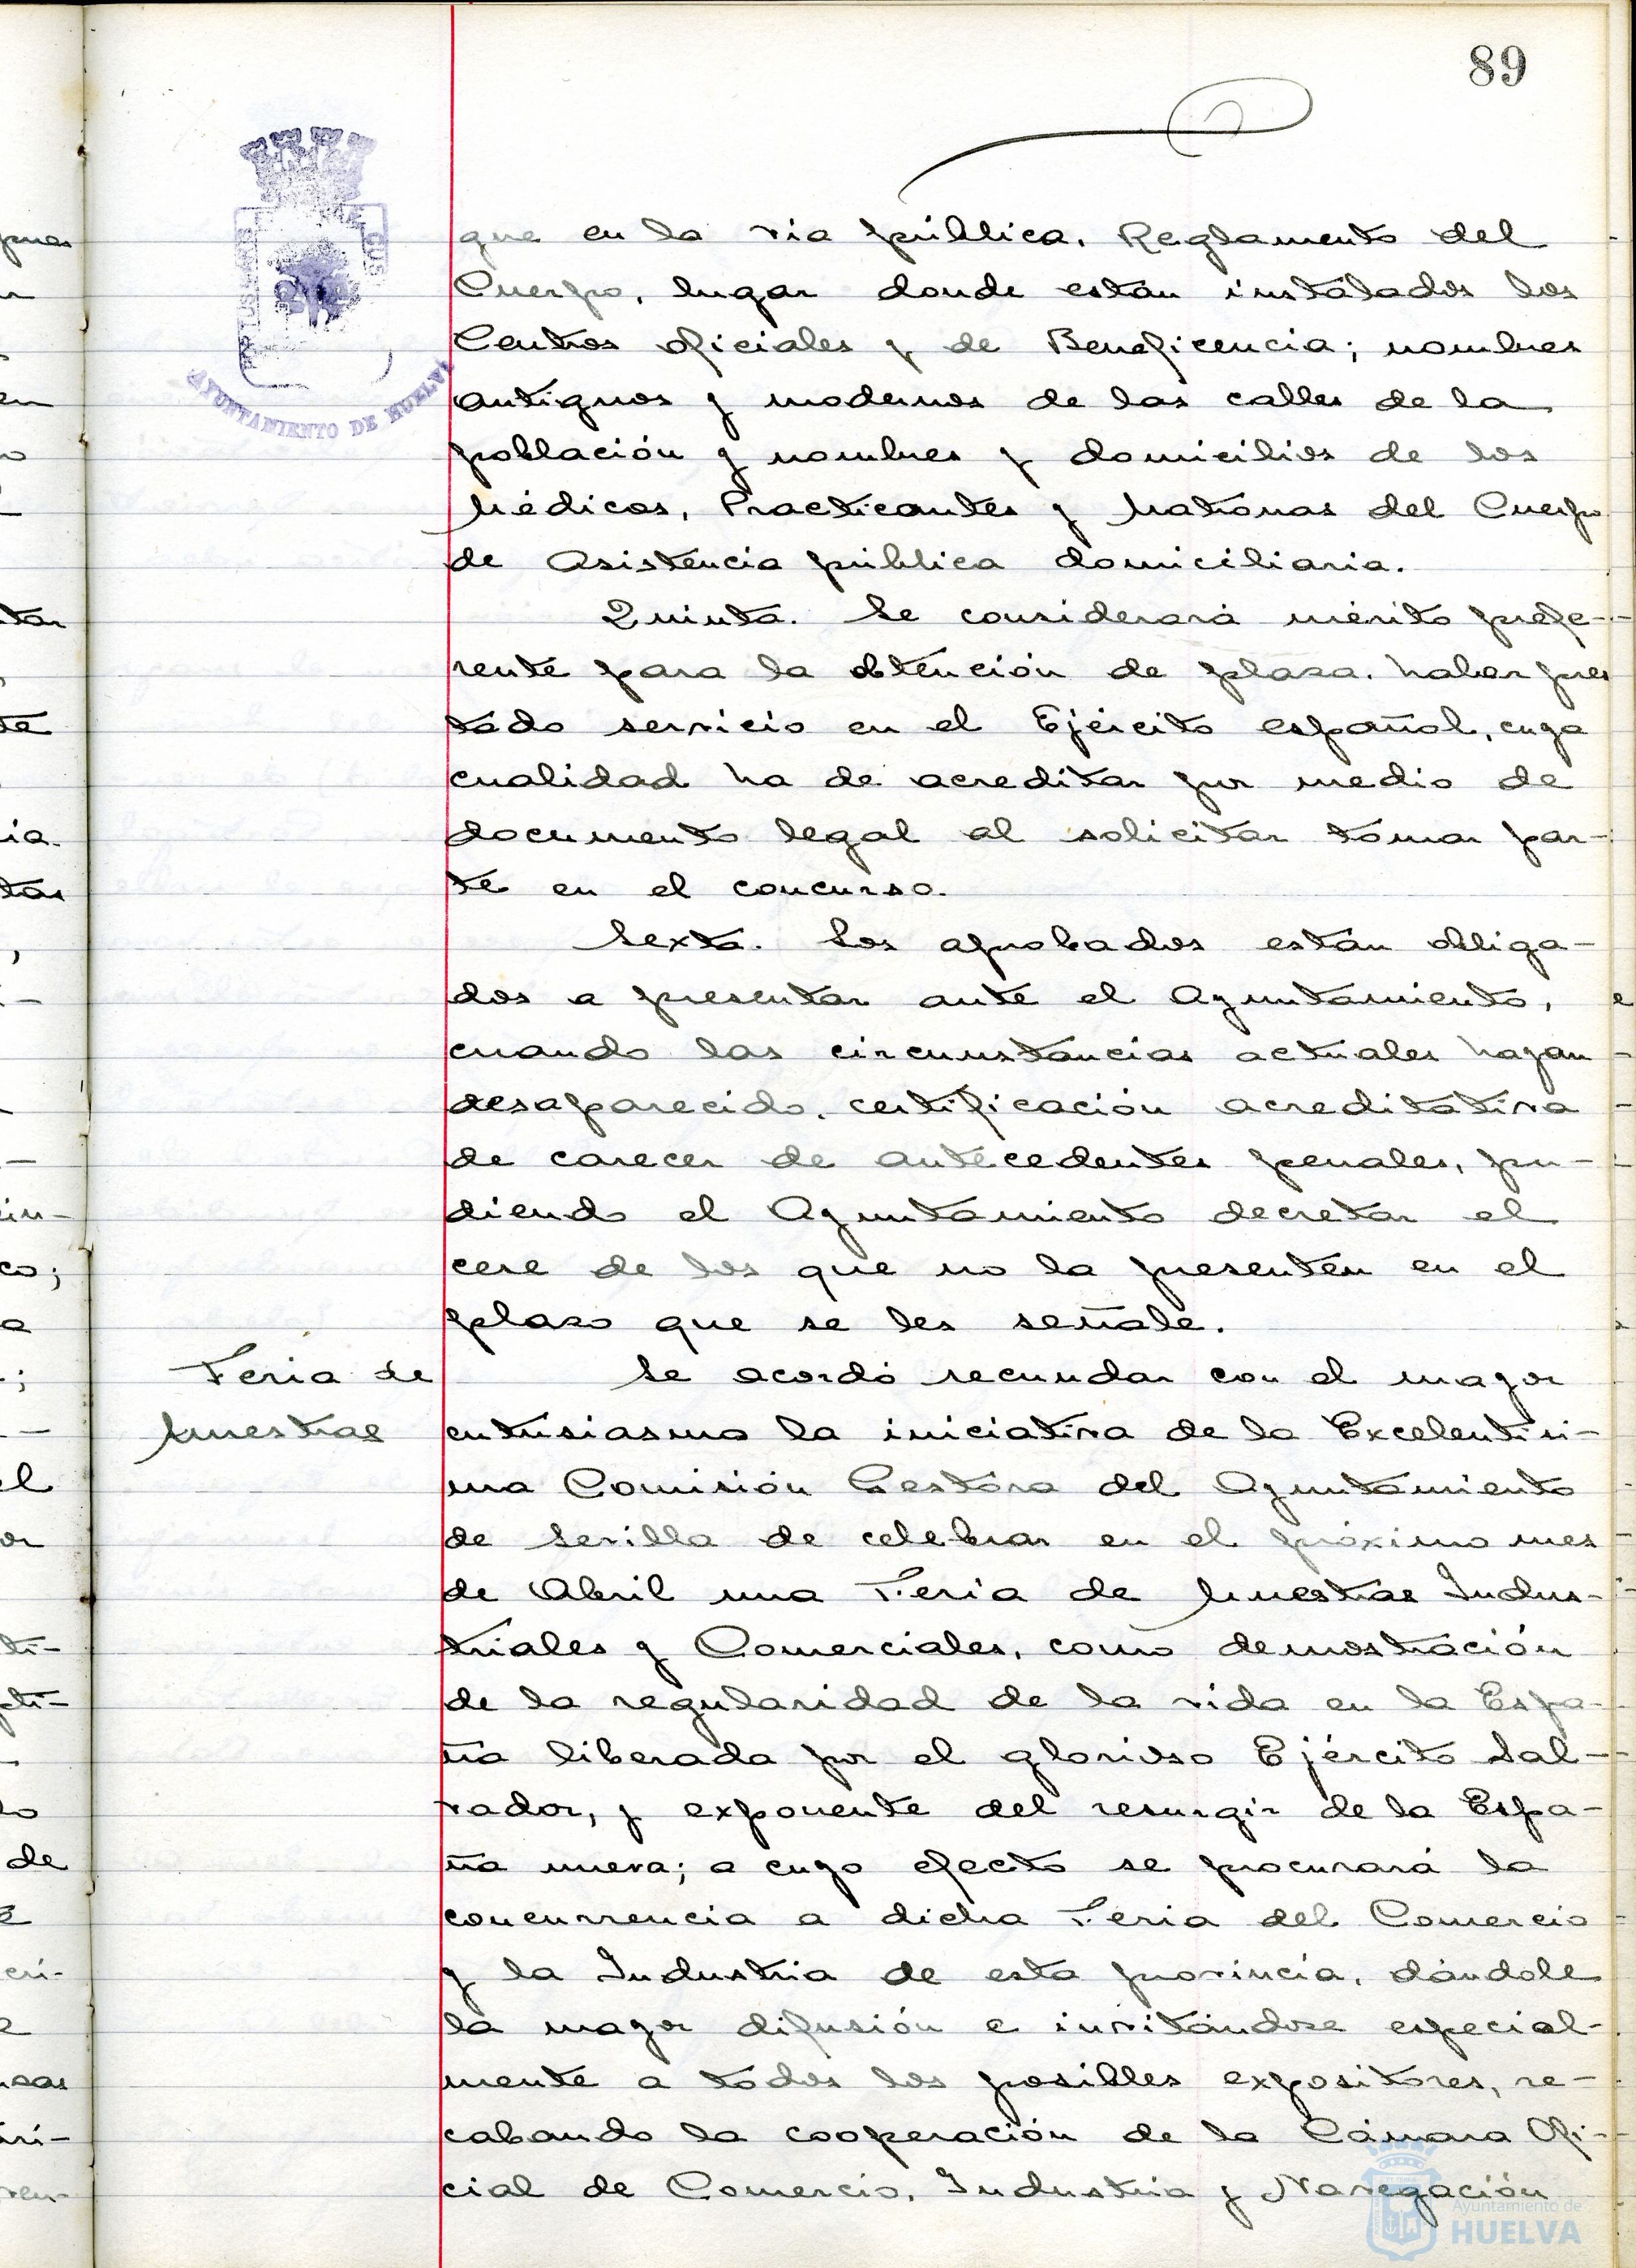 89
que en la via pública, Reglamento del
Cuerpo, lugar donde están instalados los
Centros oficiales y de Beneficencia; nombres
antiguos y modernos de las calles de la
población y nombres y domicilios de los
Médicos, Practicantes y Matronas del Cuerpo
de Asistencia pública domiciliaria.
Quinta. Se considerará mérito prefe-
rente para la obtención de plaza, haber pres
tado servicio en el Ejército español, cuya
cualidad ha de acreditar por medio de
documento legal al solicitar tomar par-
te en el concurso.
Sexta. Los aprobados están obliga-
dos a presentar ante el Ayuntamiento,
cuando las circunstancias actuales hayan
desaparecido, certificación acreditativa
de carecer de antecedentes penales, pu-
diendo el Ayuntamiento decretar el
cese de los que no la presenten en el
plazo que se les señale.
Feria de
Muestras
Se acordó secundar con el mayor
entusiasmo la iniciativa de la Excelentísi-
ma Comisión Gestora del Ayuntamiento
de Sevilla de celebrar en el próximo mes
de Abril una Feria de Muestras Indus-
triales y Comerciales, como demostración
de la regularidad de la vida en la Espa-
ña liberada por el glorioso Ejército Sal-
vador, y exponente del resurgir de la Espa-
ña nueva; a cuyo efecto se procurará la
concurrencia a dicha Feria del Comercio
y la Industria de esta provincia, dándole
la mayor difusión e invitándose especial-
mente a todos los posibles expositores, re-
cabando la cooperación de la Cámara Ofi-
cial de Comercio, Industria y Navegación
AYUNTAMIENTO DE HUELVA
Ayuntamiento de
HUELVA